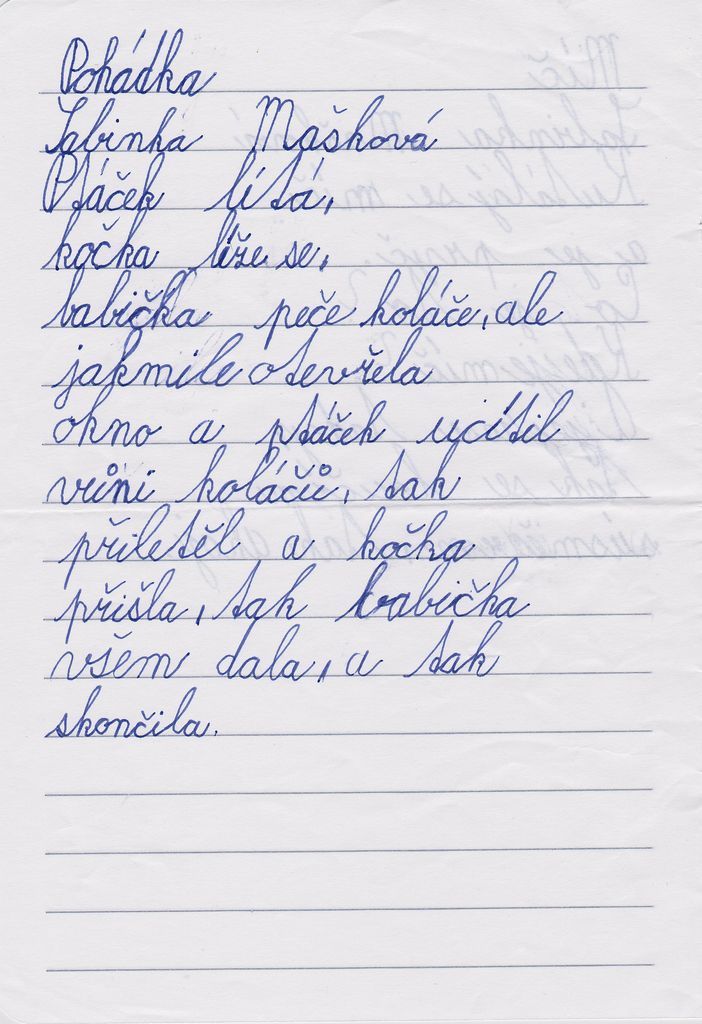 Pohádka
Sabinka Mašková
Ptáček lítá,
kočka líže se,
babička peče koláče, ale
jakmile otevřela
okno a ptáček ucítil
vůni koláčů, tak
přiletěl a kočka
přišla, tak babička
všem dala, a tak
skončila.